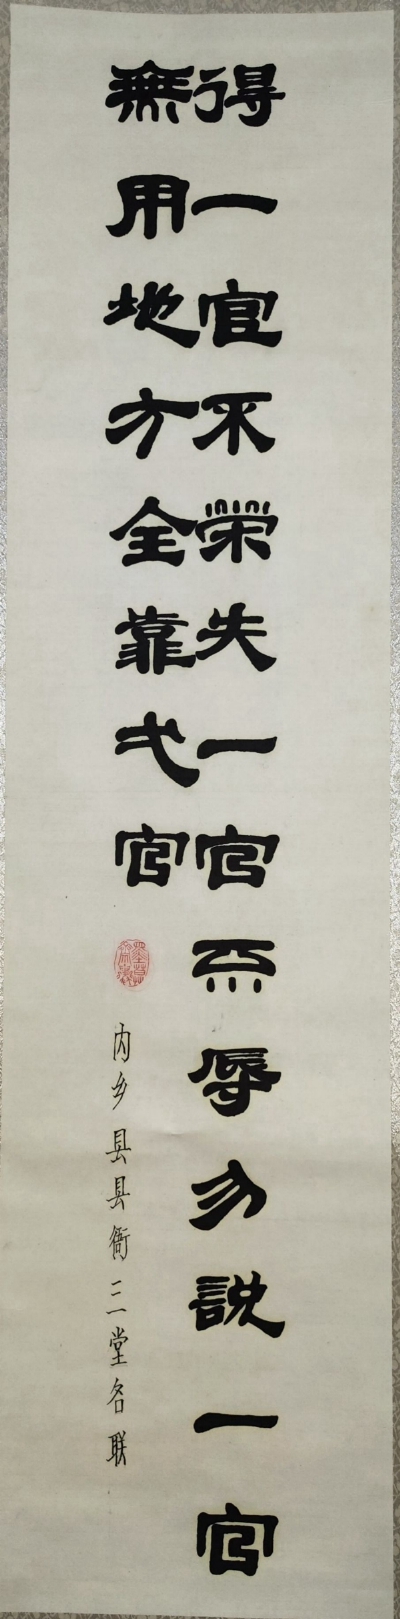 得一官不榮失一官不辱勿說一官
無用地方全靠弌官
内乡县县衙三堂名联